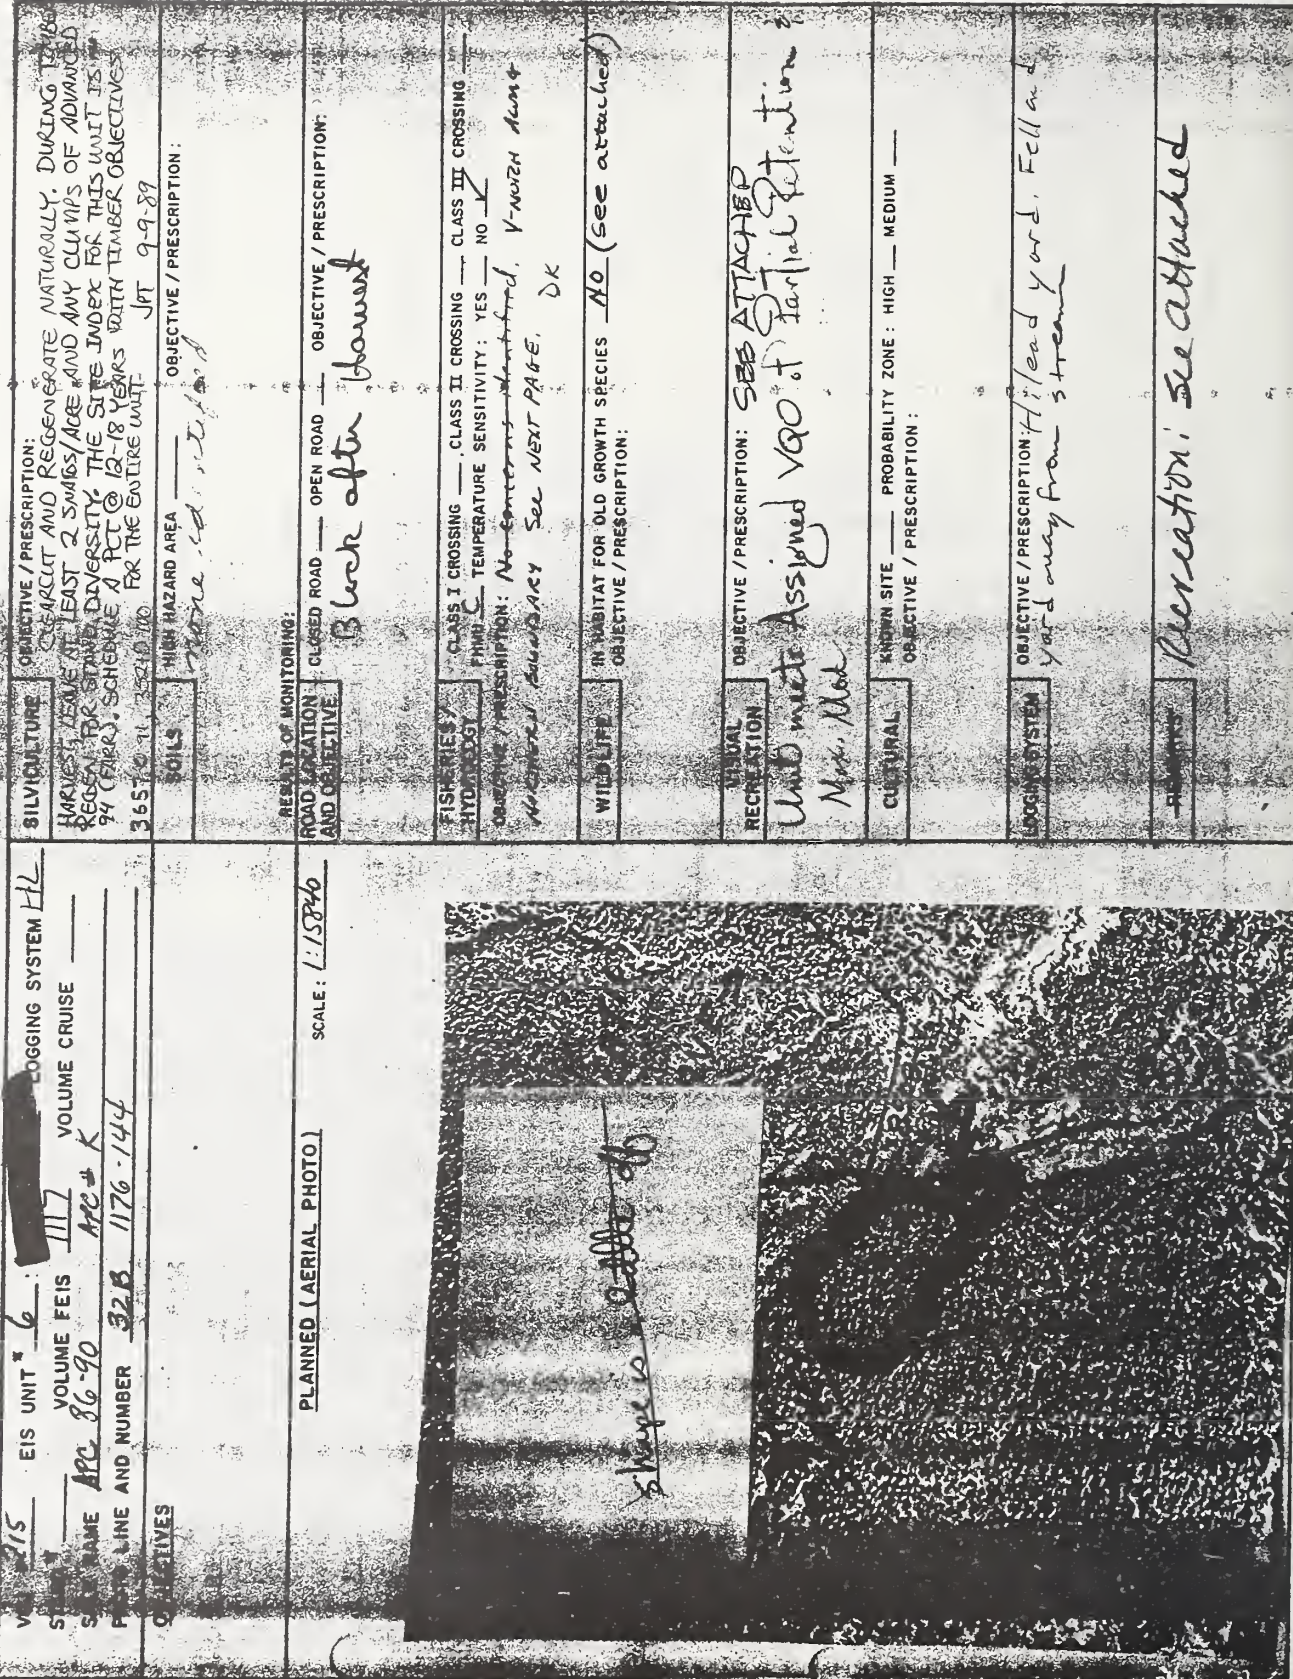 EIS UNIT # 6 LOGGING SYSTEM HL
VOLUME FEIS 1117 VOLUME CRUISE
APC 86-90 APC # K
LINE AND NUMBER 32B 1176-144
OBJECTIVES
PLANNED (AERIAL PHOTO) SCALE: 1:15840
SILVICULTURE OBJECTIVE / PRESCRIPTION:
CLEARCUT AND REGENERATE NATURALLY. DURING
HARVEST, LEAVE AT LEAST 2 SNAGS/ACRE AND ANY CLUMPS OF ADVANCED
REGEN. FOR STAND DIVERSITY. THE SITE INDEX FOR THIS UNIT IS
94 (FARR). SCHEDULE A PCT @ 12-18 YEARS WITH TIMBER OBJECTIVES
FOR THE ENTIRE UNIT. JPT 9-9-89
SOILS HIGH HAZARD AREA OBJECTIVE / PRESCRIPTION:
None identified
RESULTS OF MONITORING:
ROAD LOCATION AND OBJECTIVE CLOSED ROAD OPEN ROAD OBJECTIVE / PRESCRIPTION:
Block after Harvest
FISHERIES / HYDROLOGY CLASS I CROSSING CLASS II CROSSING CLASS III CROSSING
FMHU C TEMPERATURE SENSITIVITY: YES NO ✓
OBJECTIVE / PRESCRIPTION: No concerns identified. V-NOTCH ALONG
NORTHERN BOUNDARY See NEXT PAGE. DK
WILDLIFE IN HABITAT FOR OLD GROWTH SPECIES NO (see attached)
OBJECTIVE / PRESCRIPTION:
VISUAL RECREATION OBJECTIVE / PRESCRIPTION: SEE ATTACHED
Unit meets Assigned VQO of Partial Retention &
Max. Mod.
CULTURAL KNOWN SITE PROBABILITY ZONE: HIGH MEDIUM
OBJECTIVE / PRESCRIPTION:
LOGGING SYSTEM OBJECTIVE / PRESCRIPTION: Hilead yard. Fell and
yard away from stream
REMARKS Recreation: see attached